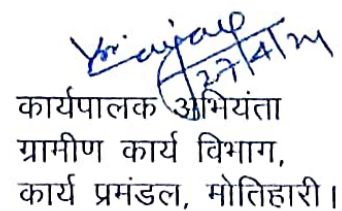 27/4/24
कार्यपालक अभियंता
ग्रामीण कार्य विभाग,
कार्य प्रमंडल, मोतिहारी।